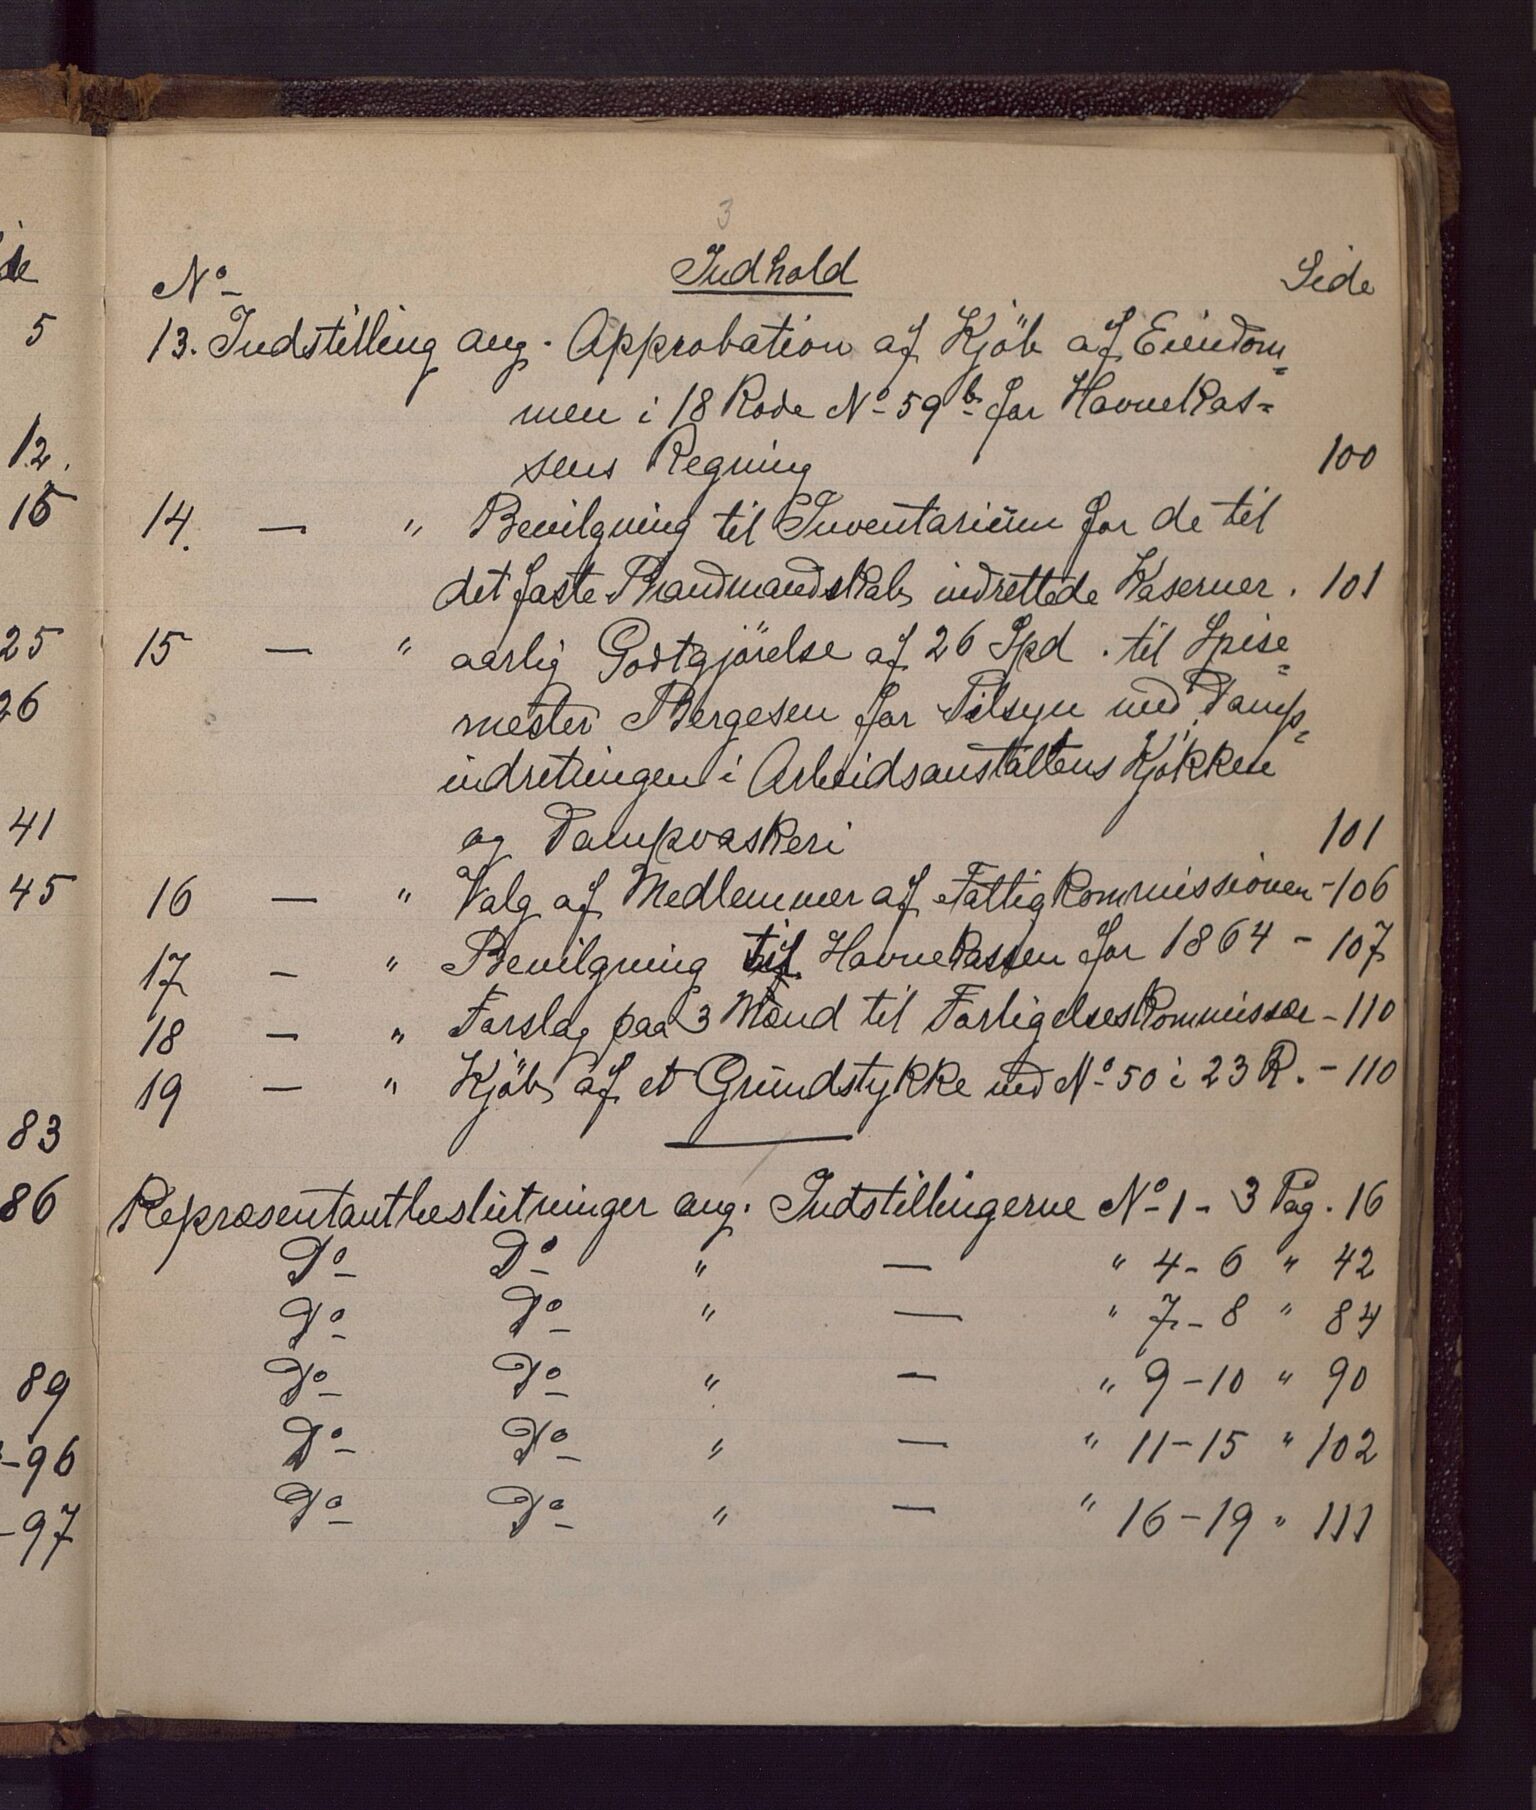 3
No Indhold Side
13. Indstilling ang. Approbation af Kjöb af Eiendom=
men i 18 Rode No 59b for Havnekas=
sens Regning 100
14. — " Bevilgning til Inventarium for de til
det faste Brandmandskab indrettede Kaserner. 101
15 — " aarlig Godtgjörelse af 26 Spd. til Spise=
mester Bergesen for Tilsyn med Damp=
indretningen i Arbeidsanstaltens Kjökken
og Dampvaskeri 101
16 — " Valg af Medlemmer af Fattigkommissionen - 106
17 — " Bevilgning til Havnekassen for 1864 - 107
18 — " Forslag paa 3 Mænd til Forligelseskommissær - 110
19 — " Kjöb af et Grundstykke ved No 50 i 23 R. - 110
Repræsentantbeslutninger ang. Indstillingerne No 1 - 3 Pag. 16
Do Do " — " 4 - 6 " 42
Do Do " — " 7 - 8 " 84
Do Do " — " 9 - 10 " 90
Do Do " — " 11 - 15 " 102
Do Do " — " 16 - 19 " 111
5
12.
15
25
26
41
45
83
86
89
-96
-97